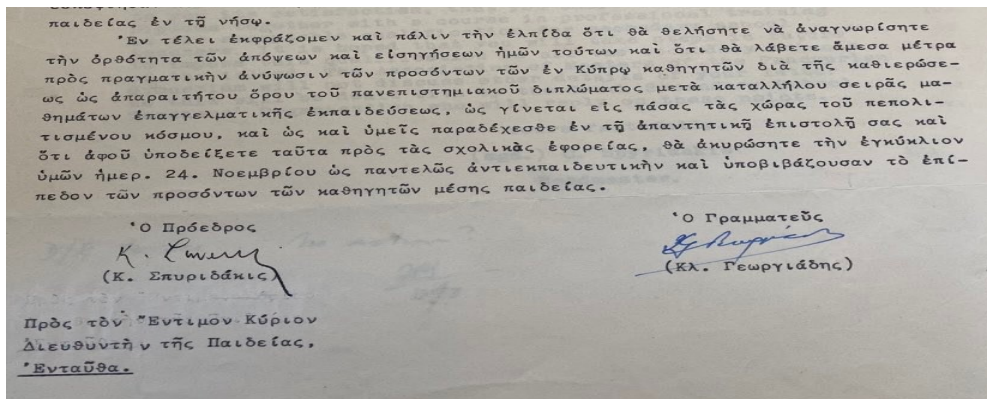 παιδείας ἐν τῇ νήσῳ.
Ἐν τέλει ἐκφράζομεν καὶ πάλιν τὴν ἐλπίδα ὅτι θὰ θελήσητε νὰ ἀναγνωρίσητε
τὴν ὀρθότητα τῶν ἀπόψεων καὶ εἰσηγήσεων ἡμῶν τούτων καὶ ὅτι θὰ λάβετε ἄμεσα μέτρα
πρὸς πραγματικὴν ἀνύψωσιν τῶν προσόντων τῶν ἐν Κύπρῳ καθηγητῶν διὰ τῆς καθιερώσε-
ως ὡς ἀπαραιτήτου ὅρου τοῦ πανεπιστημιακοῦ διπλώματος μετὰ καταλλήλου σειρᾶς μα-
θημάτων ἐπαγγελματικῆς ἐκπαιδεύσεως, ὡς γίνεται εἰς πάσας τὰς χώρας τοῦ πεπολι-
τισμένου κόσμου, καὶ ὡς καὶ ὑμεῖς παραδέχεσθε ἐν τῇ ἀπαντητικῇ ἐπιστολῇ σας καὶ
ὅτι ἀφοῦ ὑποδείξετε ταῦτα πρὸς τὰς σχολικὰς ἐφορείας, θὰ ἀκυρώσητε τὴν ἐγκύκλιον
ὑμῶν ἡμερ. 24. Νοεμβρίου ὡς παντελῶς ἀντιεκπαιδευτικὴν καὶ ὑποβιβάζουσαν τὸ ἐπί-
πεδον τῶν προσόντων τῶν καθηγητῶν μέσης παιδείας.
Ὁ Πρόεδρος
Ὁ Γραμματεῦς
(Κ. Σπυριδάκις)
(Κλ. Γεωργιάδης)
Πρὸς τὸν Ἔντιμον Κύριον
Διευθυντὴν τῆς Παιδείας,
Ἐνταῦθα.